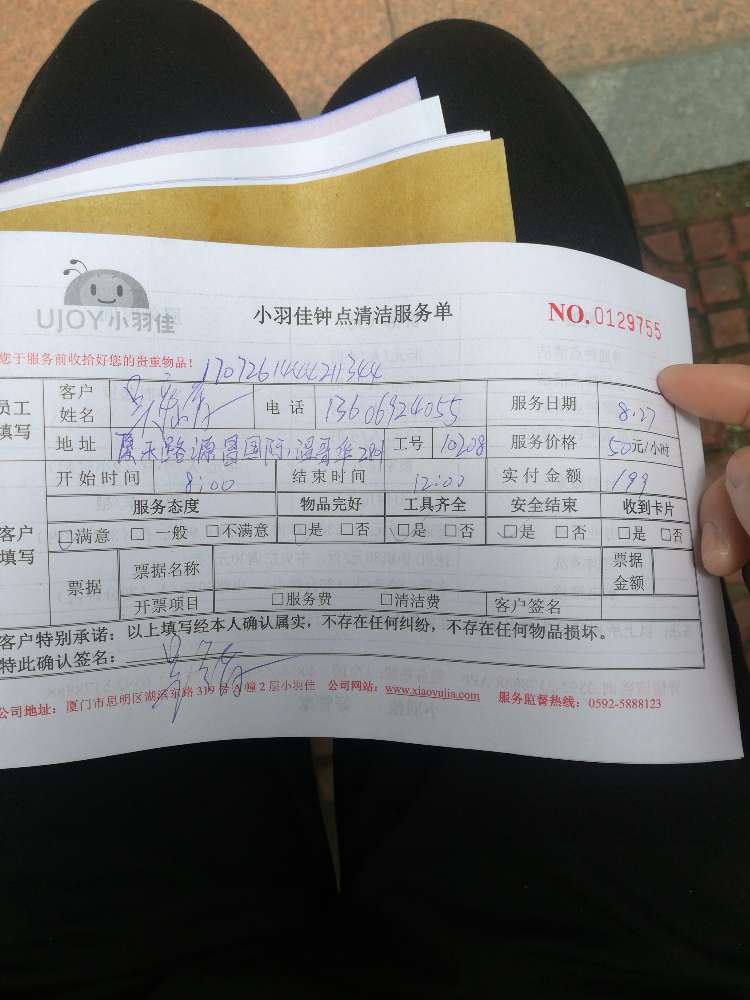 UJOY小羽佳
小羽佳钟点清洁服务单
NO.0129755
您于服务前收拾好您的贵重物品！
1707261444211344
员工填写 客户姓名 电话 13606924055 服务日期 8.27
地址 厦禾路源昌国际 工号 10208 服务价格 50元/小时
开始时间 8:00 结束时间 12:00 实付金额 199
客户填写 服务态度 物品完好 工具齐全 安全结束 收到卡片
□满意 □一般 □不满意 □是 □否 □是 □否 □是 □否 □是 □否
票据 票据名称 票据金额
开票项目 □服务费 □清洁费 客户签名
客户特别承诺：以上填写经本人确认属实，不存在任何纠纷，不存在任何物品损坏。
特此确认签名：
公司地址：厦门市思明区湖滨东路319号A幢2层小羽佳 公司网站：www.xiaoyujia.com 服务监督热线：0592-5888123